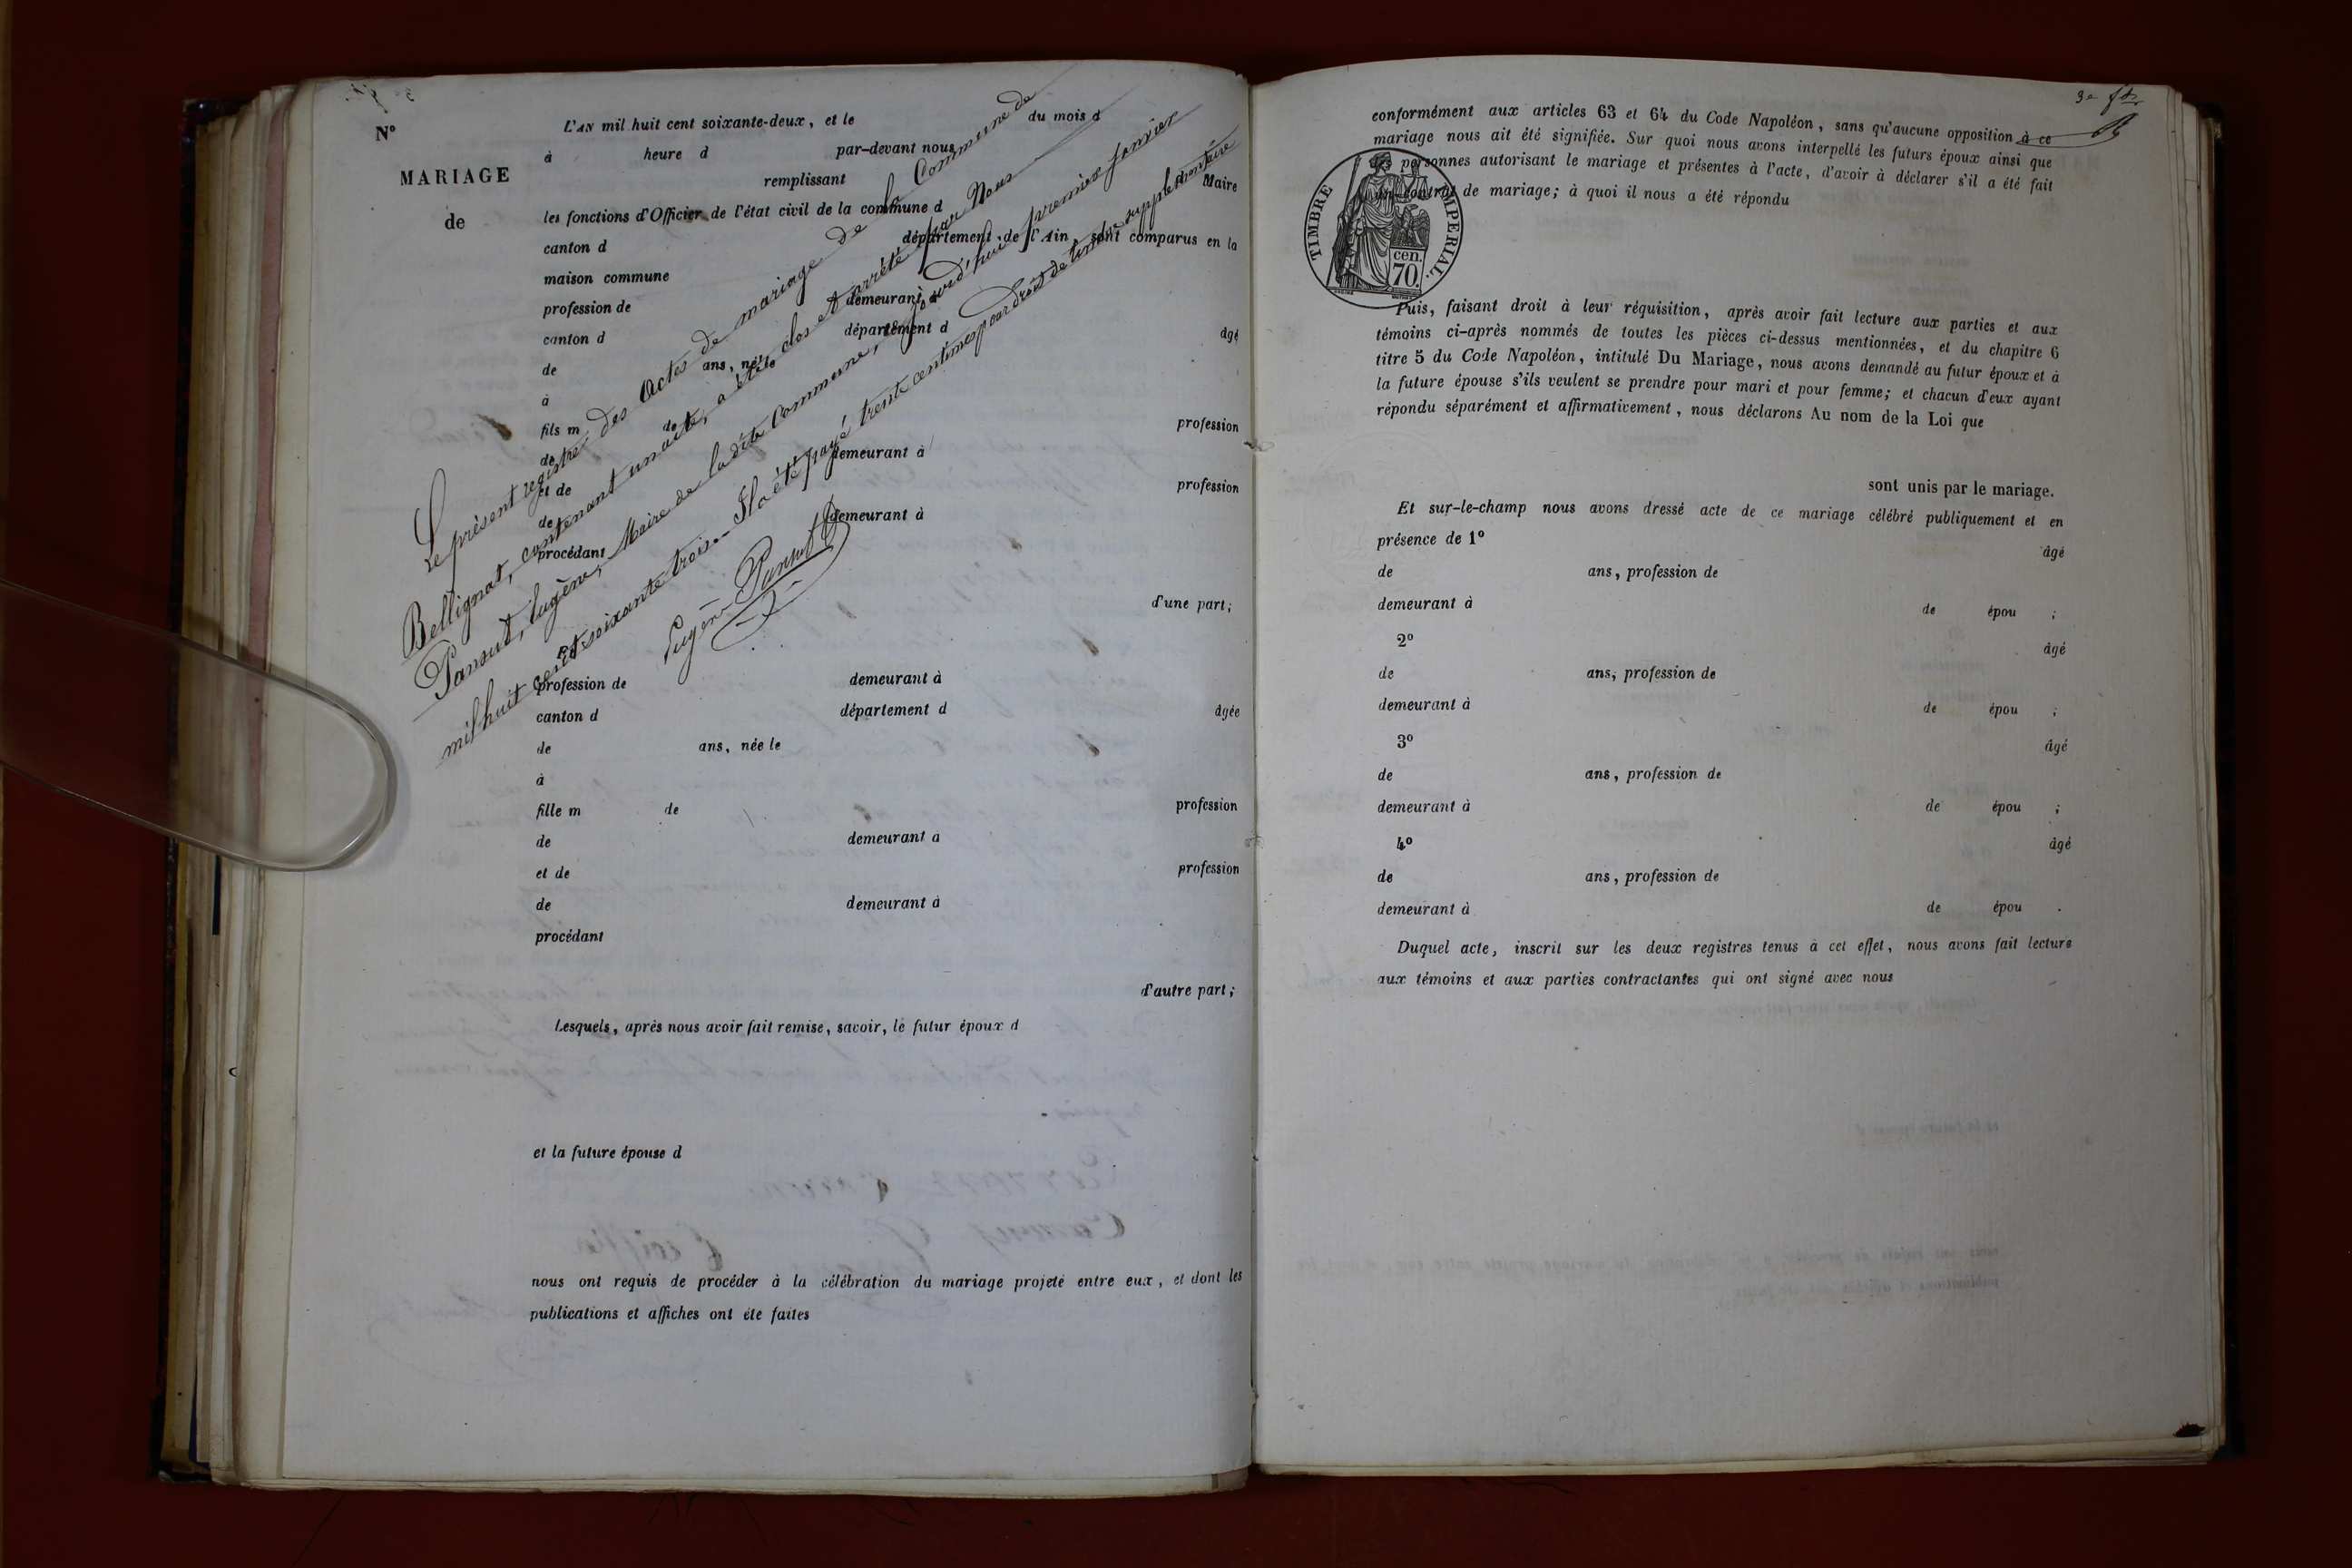 N°
MARIAGE
de
L'AN mil huit cent soixante-deux, et le du mois d
à heure d par-devant nous
remplissant
les fonctions d'Officier de l'état civil de la commune d Maire
canton d département de l'Ain sont comparus en la
maison commune
profession de demeurant à
canton d département d âgé
de ans, né le
à
fils m de profession
de demeurant à
et de profession
de demeurant à
procédant
d'une part;
Et
profession de demeurant à
canton d département d âgée
de ans, née le
à
fille m de profession
de demeurant à
et de profession
de demeurant à
procédant
d'autre part;
Lesquels, après nous avoir fait remise, savoir, le futur époux d
et la future épouse d
nous ont requis de procéder à la célébration du mariage projeté entre eux, et dont les
publications et affiches ont été faites
Le présent registre des Actes de mariage de la Commune de
Bellignat, contenant un acte, a été clos et arrêté par Nous
Pansut, Eugène, Maire de la dite Commune, aujourd'hui premier janvier
mil huit cent soixante trois. Il a été payé trente centimes pour droit de timbre supplémentaire
Eugène Pansut
3e ft
conformément aux articles 63 et 64 du Code Napoléon, sans qu'aucune opposition à ce
mariage nous ait été signifiée. Sur quoi nous avons interpellé les futurs époux ainsi que
les personnes autorisant le mariage et présentes à l'acte, d'avoir à déclarer s'il a été fait
un contrat de mariage; à quoi il nous a été répondu
TIMBRE IMPERIAL.
cen.
70.
Puis, faisant droit à leur réquisition, après avoir fait lecture aux parties et aux
témoins ci-après nommés de toutes les pièces ci-dessus mentionnées, et du chapitre 6
titre 5 du Code Napoléon, intitulé Du Mariage, nous avons demandé au futur époux et à
la future épouse s'ils veulent se prendre pour mari et pour femme; et chacun d'eux ayant
répondu séparément et affirmativement, nous déclarons Au nom de la Loi que
sont unis par le mariage.
Et sur-le-champ nous avons dressé acte de ce mariage célébré publiquement et en
présence de 1° âgé
de ans, profession de
demeurant à de épou ;
2° âgé
de ans, profession de
demeurant à de épou ;
3° âgé
de ans, profession de
demeurant à de épou ;
4° âgé
de ans, profession de
demeurant à de épou .
Duquel acte, inscrit sur les deux registres tenus à cet effet, nous avons fait lecture
aux témoins et aux parties contractantes qui ont signé avec nous